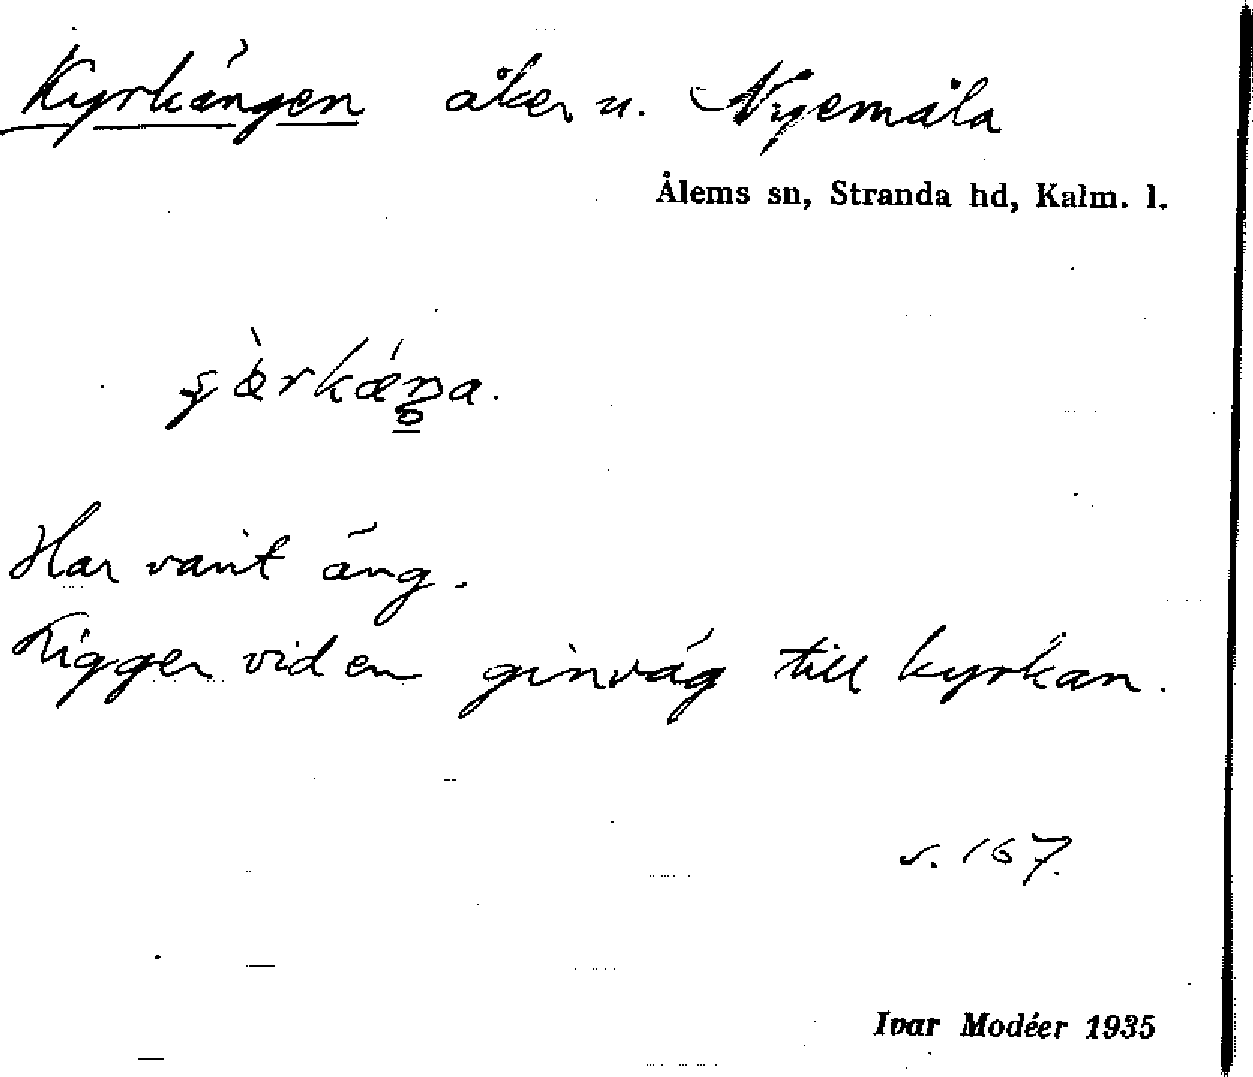 Kyrkängen åker u. Nyemåla
Ålems sn, Stranda hd, Kalm. l.
Har varit äng.
Ligger vid en ginväg till kyrkan.
s. 167.
Ivar Modéer 1935